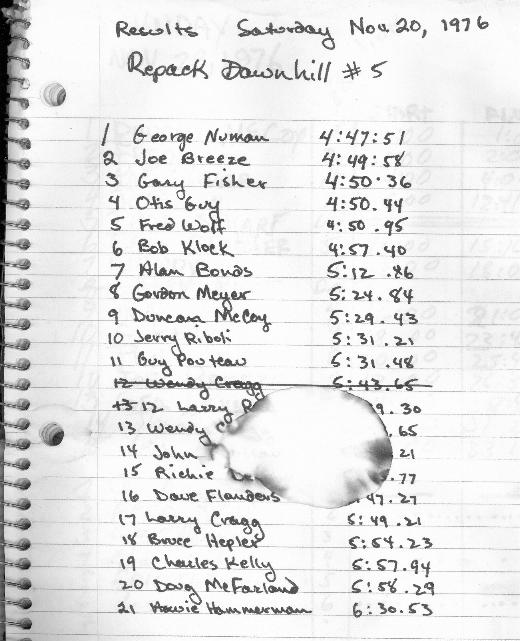 Results Saturday Nov. 20, 1976
Repack Downhill #5
1 George Numan 4:47:51
2 Joe Breeze 4:49:58
3 Gary Fisher 4:50.36
4 Otis Guy 4:50.44
5 Fred Wolf 4:50.95
6 Bob Kloek 4:57.40
7 Alan Bonds 5:12.86
8 Gordon Meyer 5:24.84
9 Duncan McCoy 5:29.43
10 Jerry Riboli 5:31.21
11 Guy Pouteau 5:31.48
12 Wendy Cragg 5:43.65
13 12 Larry 9.30
13 Wendy .65
14 John 21
15 Richie .77
16 Dave Flanders 47.27
17 Larry Cragg 5:49.21
18 Bruce Hepler 5:54.23
19 Charles Kelly 5:57.94
20 Doug McFarland 5:58.29
21 Howie Hammerman 6:30.53